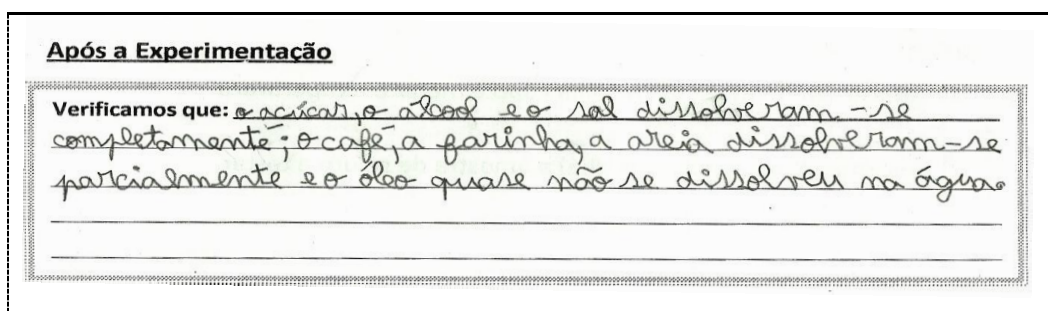 Após a Experimentação
Verificamos que: o açúcar, o álcool e o sal dissolveram-se
completamente; o café, a farinha, a areia dissolveram-se
parcialmente e o óleo quase não se dissolveu na água.